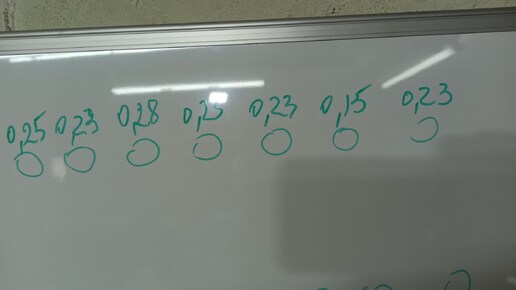 0,25 0,23 0,28 0,23 0,15 0,23